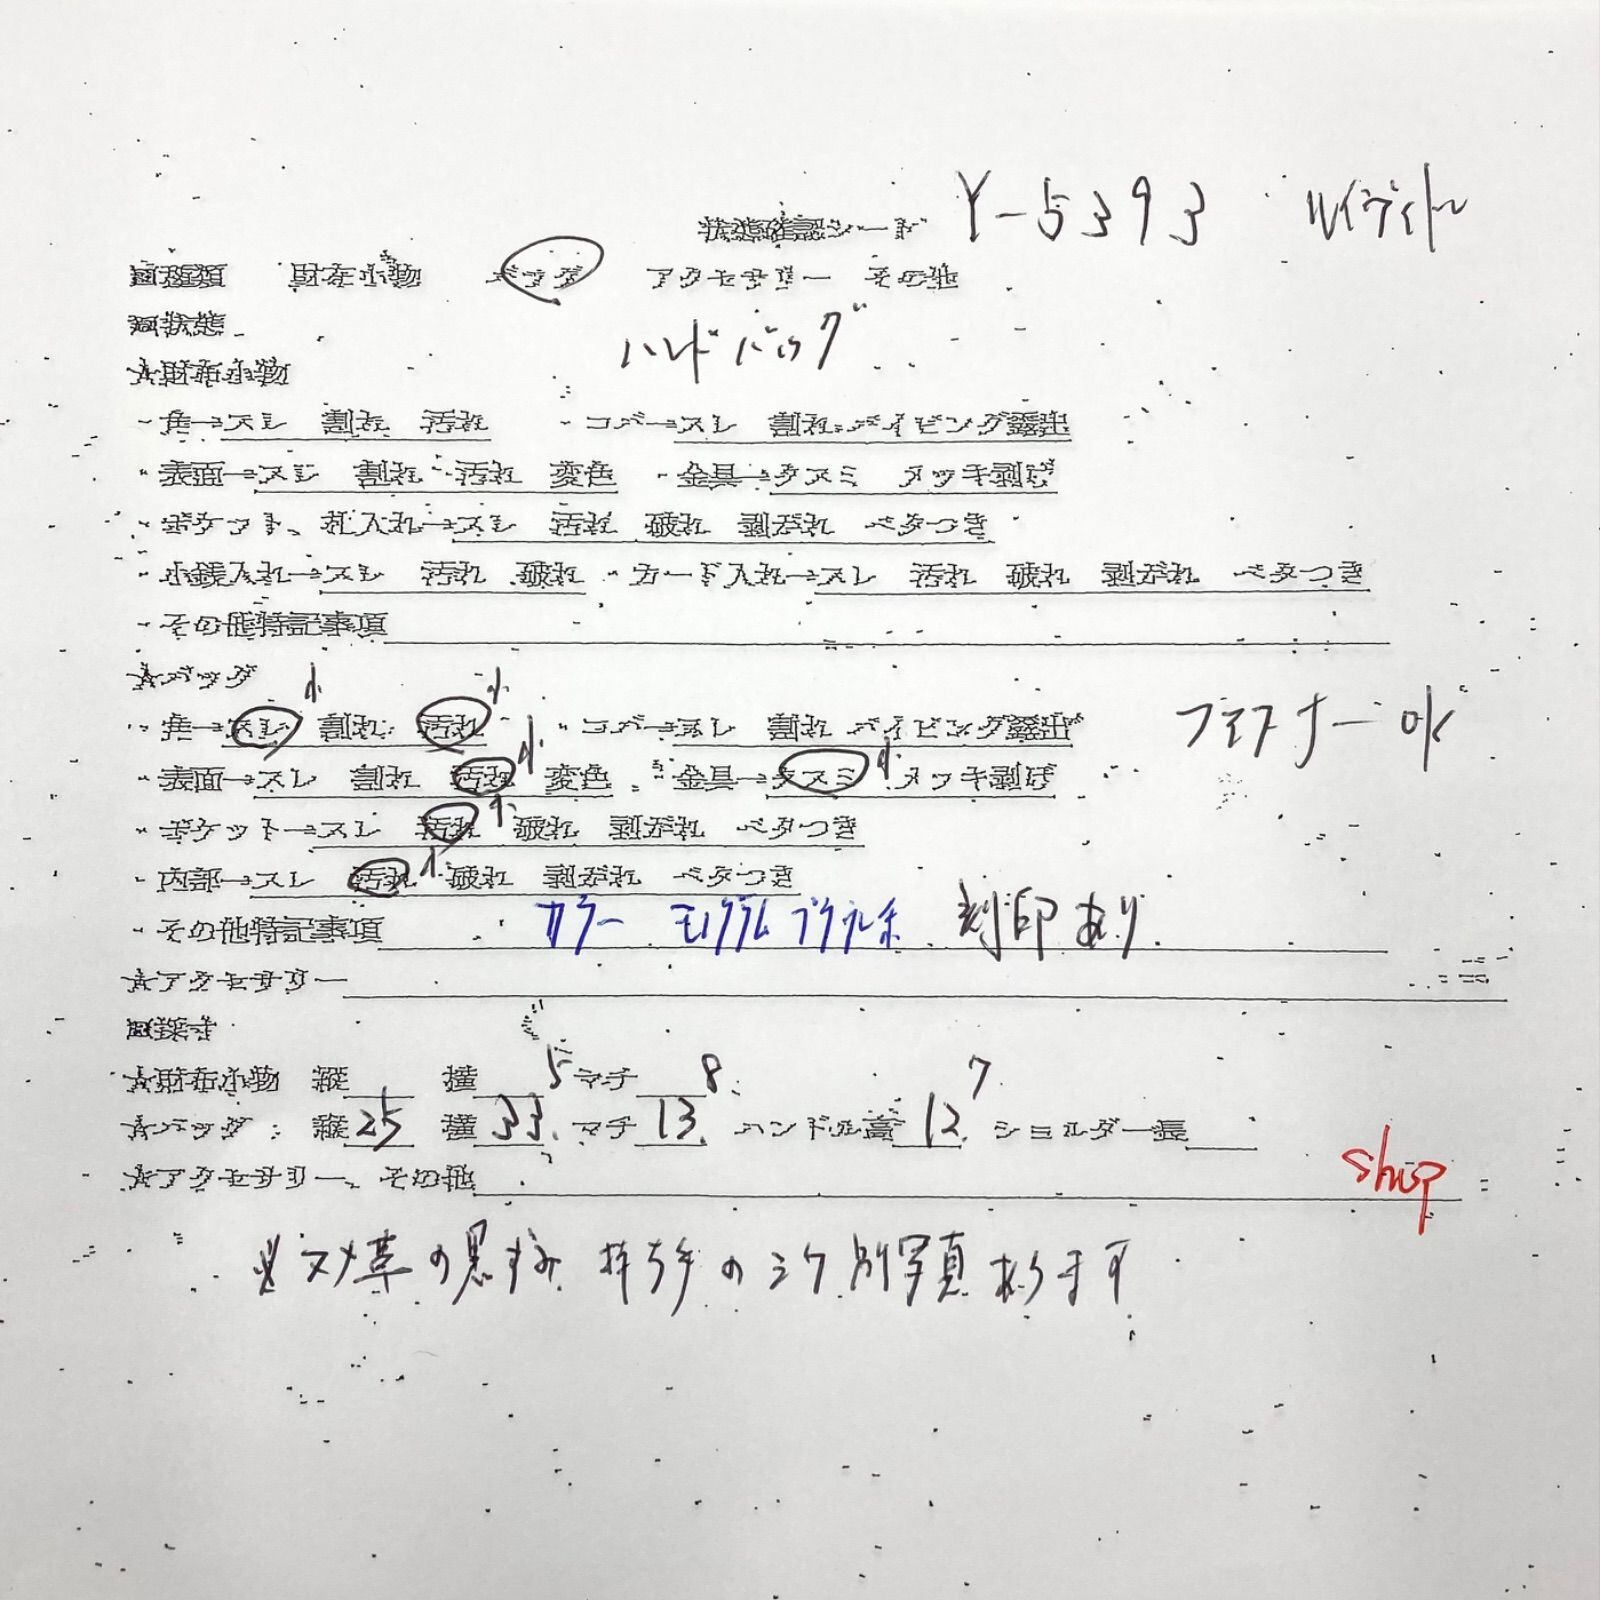 状態確認シート Y-5393 ルイヴィトン
■種類 財布小物 バッグ アクセサリー その他
■状態
ハンドバッグ
☆財布小物
・角→スレ 割れ 汚れ ・コバ→スレ 割れ パイピング露出
・表面→スレ 割れ 汚れ 変色 ・金具→クスミ メッキ剥げ
・ポケット、札入れ→スレ 汚れ 破れ 剝がれ ベタつき
・小銭入れ→スレ 汚れ 破れ ・カード入れ→スレ 汚れ 破れ 剝がれ ベタつき
・その他特記事項
☆バッグ
・角→スレ小 割れ 汚れ小 ・コバ→スレ 割れ パイピング露出 ファスナーOK
・表面→スレ 割れ 汚れ小 変色 ・金具→クスミ小 メッキ剥げ
・ポケット→スレ 汚れ小 破れ 剝がれ ベタつき
・内部→スレ 汚れ小 破れ 剝がれ ベタつき
・その他特記事項 カラー モノグラム 刻印あり
☆アクセサリー
■採寸
☆財布小物 縦 横 マチ
☆バッグ 縦 25 横 33.5 マチ 13.8 ハンドル高 12.7 ショルダー長
☆アクセサリー、その他
shop
ヌメ革の黒ずみ 持ち手の 別写真あります